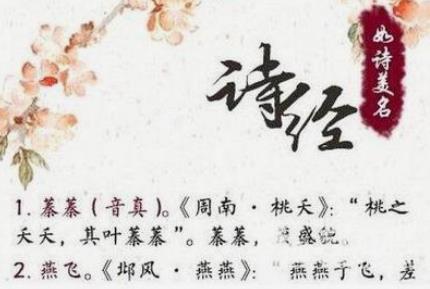 如诗美名
诗经
1. 蓁蓁（音真）。《周南·桃夭》：“桃之
夭夭，其叶蓁蓁”。蓁蓁，茂盛貌。
2. 燕飞。《邶风·燕燕》：“燕燕于飞，差